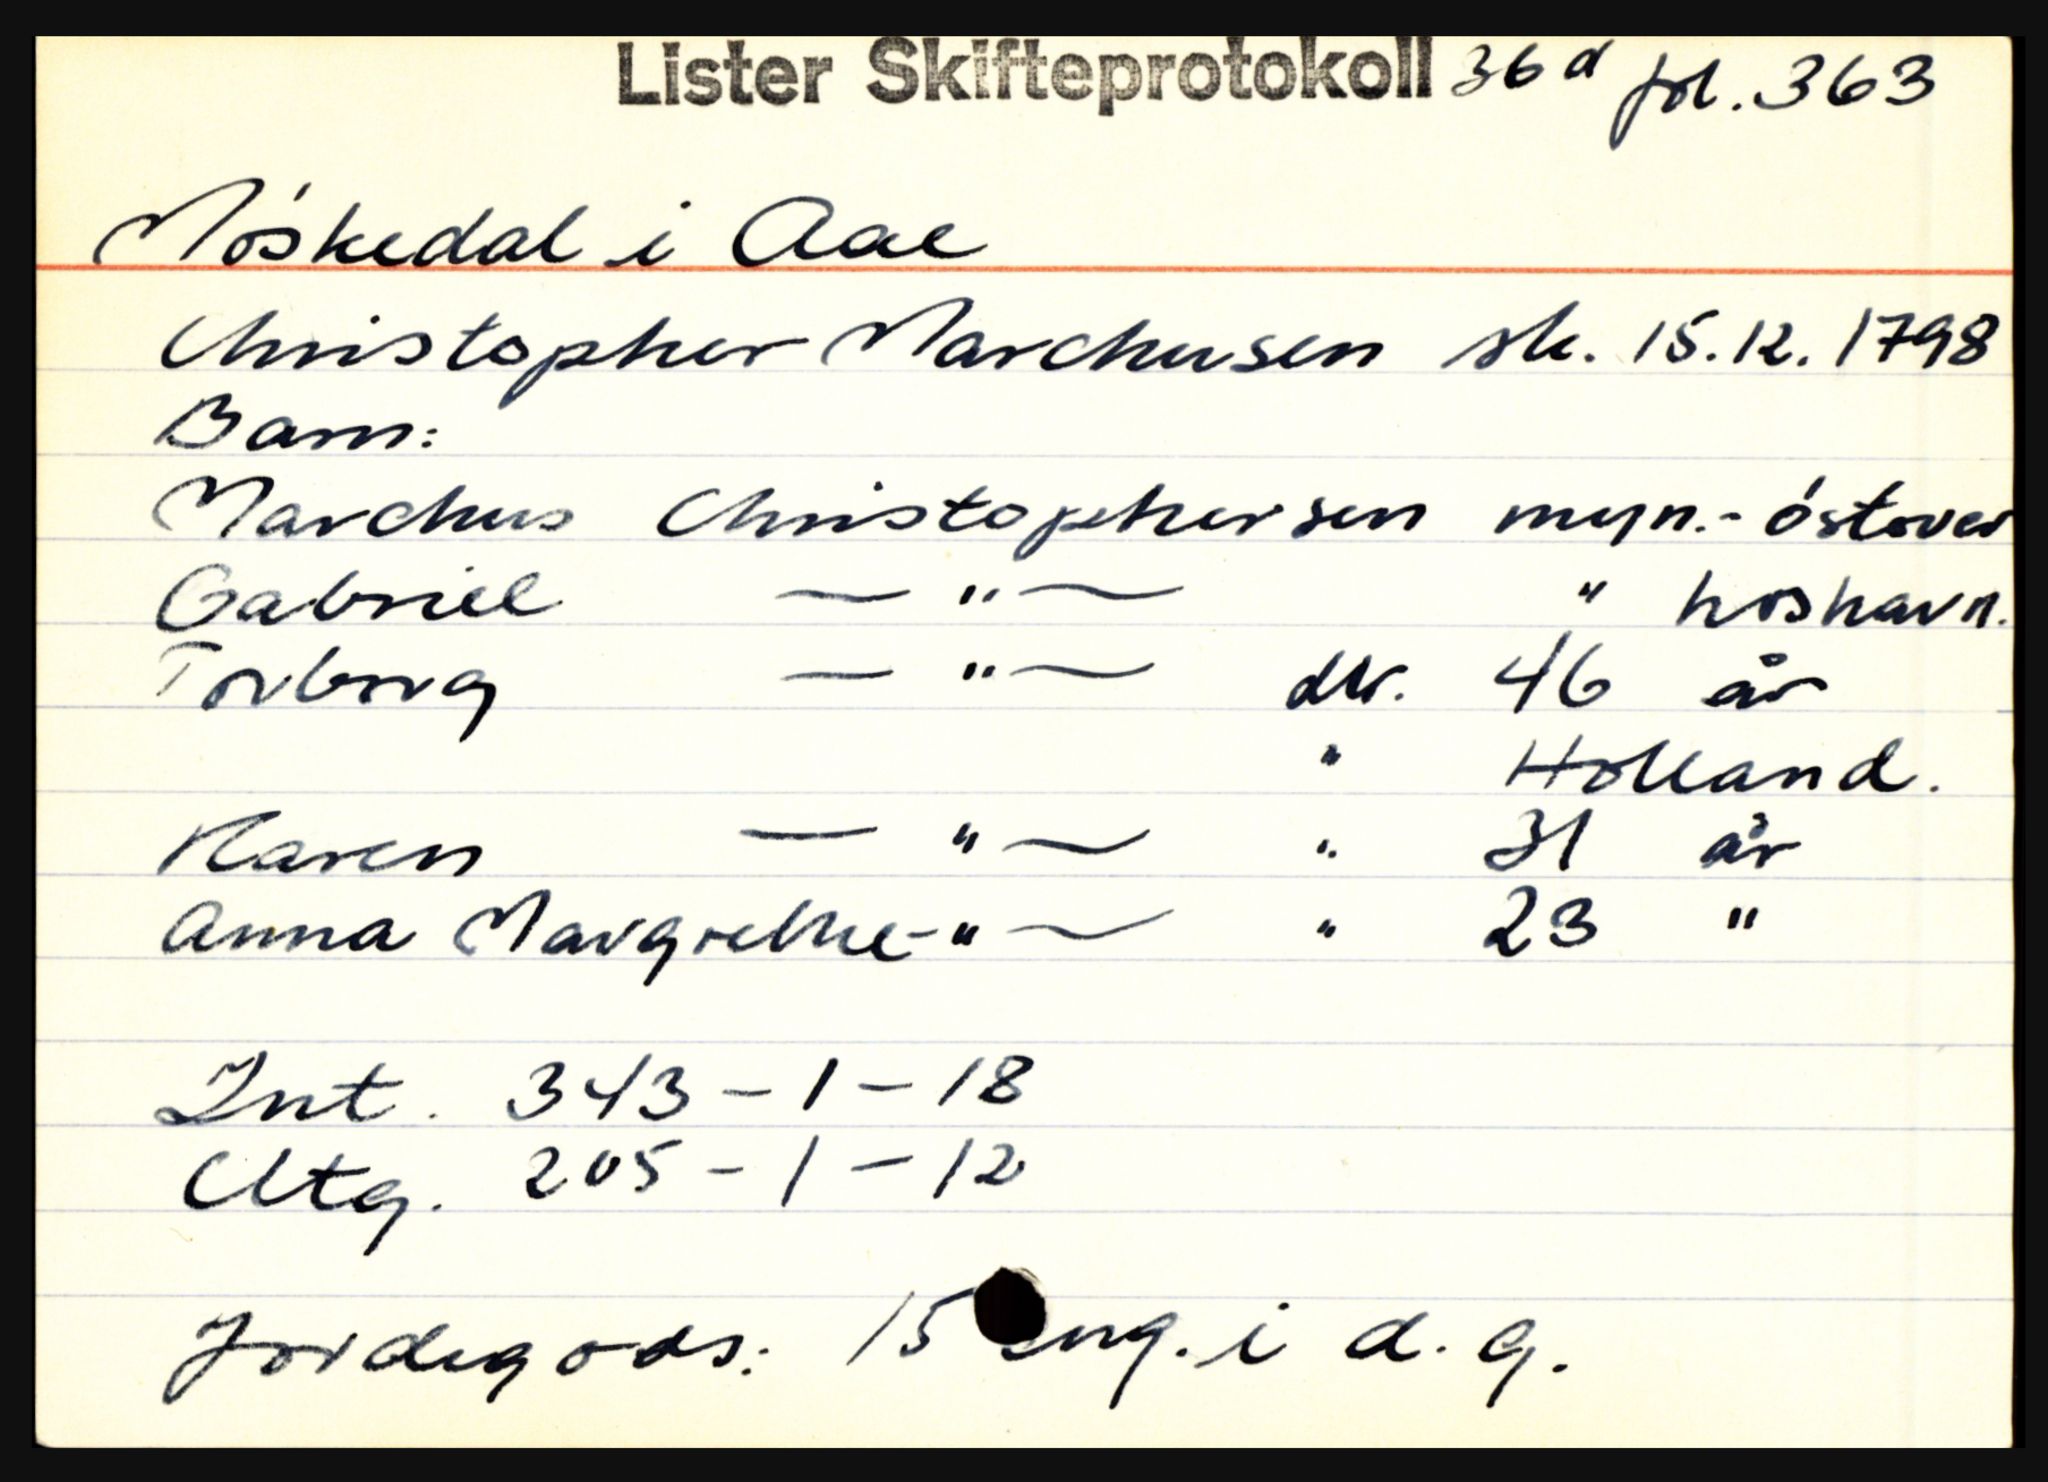 Lister Skifteprotokoll 36d fol. 363
Móskedal i Aae
Christopher Marchusen sk. 15.12.1798
Barn:
Marchus Christophersen myn.- óstover
Gabriel — " — " kʀshavn.
Torborg — " — dtr. 46 år
" Holland.
Karen — " — " 31 år
Anna Margrethe - " — " 23 "
Int. 343 - 1 - 18
Utg. 205 - 1 - 12
Jordegods: 15 eng. i d. g.